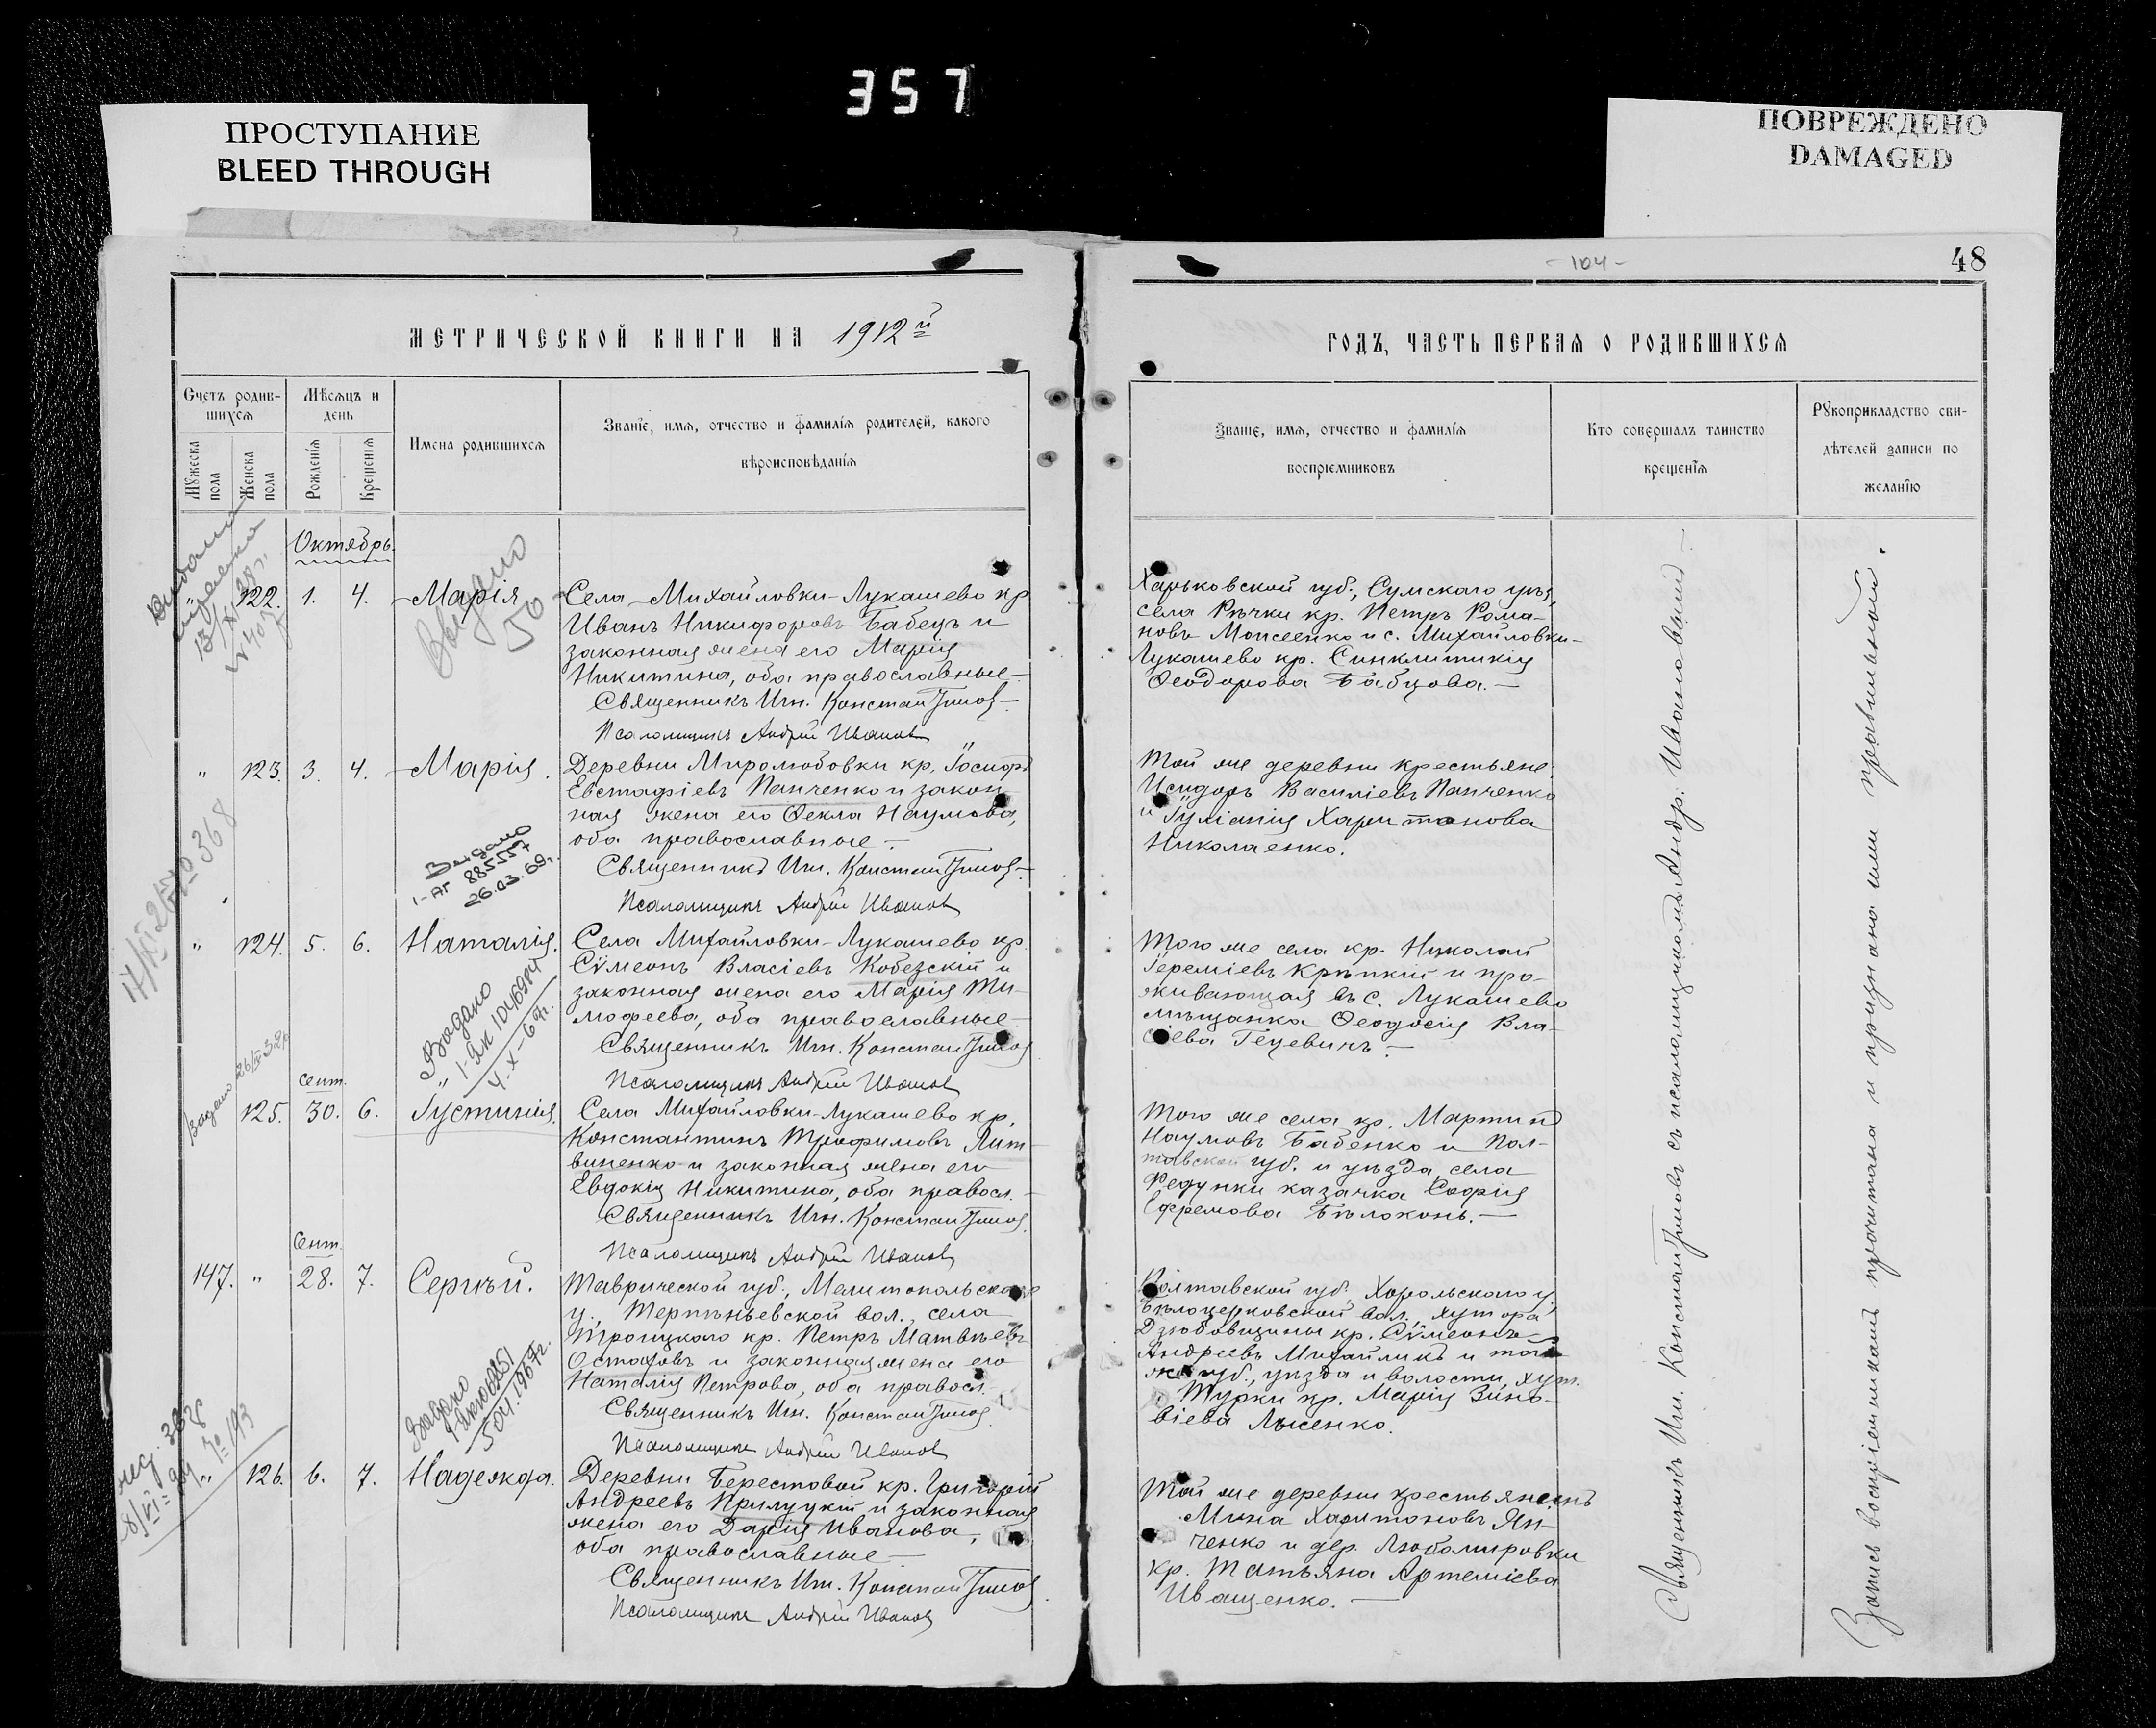 357
ПРОСТУПАНИЕ
BLEED THROUGH
ПОВРЕЖДЕНО
DAMAGED
- 104 -
48
МЕТРИЧЕСКОЙ КНИГИ НА 1912й
ГОДЪ, ЧАСТЬ ПЕРВАЯ О РОДИВШИХСЯ
Счетъ родив-
шихся
Мужеска пола
Женска пола
Мѣсяцъ и
день
Рожденія
Крещенія
Имена родившихся
Званіе, имя, отчество и фамилія родителей, какого
вѣроисповѣданія
Званіе, имя, отчество и фамилія
воспріемниковъ
Кто совершалъ таинство
крещенія
Рукоприкладство сви-
дѣтелей записи по
желанію
Октябрь.
" 122. 1. 4. Марія
Выдано
50
Села Михайловки-Лукашево кр
Иванъ Никифоровъ Бабецъ и
законная жена его Марія
Никитина, оба православные
Священникъ Игн. Константиновъ
Псаломщикъ Андрей Ивановъ
Харьковской губ., Сумскаго уѣз,
села Рѣчки кр. Петръ Рома-
новъ Моисеенко и с. Михайловки-
Лукашево кр. Синклитикія
Ѳеодорова Бабцова.
" 123. 3. 4. Марія.
Выдано
1-АГ 885557
26.03.69г.
Деревни Миролюбовки кр. Іосифъ
Евстафіевъ Панченко и закон-
ная жена его Ѳекла Наумова,
оба православные
Священникъ Игн. Константиновъ
Псаломщикъ Андрей Ивановъ
Той же деревни крестьяне
Исидоръ Василіевъ Панченко
и Іуліанія Харитонова
Николаенко.
" 124. 5. 6. Наталія.
Выдано
4.X-67г.
Села Михайловки-Лукашево кр.
Сѵмеонъ Власіевъ Кобезскій и
законная жена его Марія Ти-
мофеева, оба православные
Священникъ Игн. Константиновъ
Псаломщикъ Андрей Ивановъ
Того же села кр. Николай
Іереміевъ Крѣпкій и про-
живающая въ с. Лукашево
мѣщанка Ѳеодосія Вла-
сіева Гецевичъ.
сент.
125. 30. 6. Іустинія.
Села Михайловки-Лукашево кр.
Константинъ Трофимовъ Лит-
виненко и законная жена его
Евдокія Никитина, оба правосл.
Священникъ Игн. Константиновъ
Псаломщикъ Андрей Ивановъ
Того же села кр. Мартинъ
Наумовъ Бабенко и Пол-
тавской губ. и уѣзда, села
Федунки казачка Софія
Ефремова Бѣлоконь.
Сент.
147. " 28. 7. Сергѣй.
Выдано
Таврической губ., Мелитопольскаго
у., Терпѣньевской вол., села
Троицкаго кр. Петръ Матвѣевъ
Остаховъ и законная жена его
Наталія Петрова, оба правосл.
Священникъ Игн. Константиновъ
Псаломщикъ Андрей Ивановъ
Полтавской губ., Хорольскаго у.
Бѣлоцерковской вол. хутора
Дзюбовщины кр. Сѵмеонъ
Андреевъ Михайликъ и той
же губ., уѣзда и волости, хут.
Турки кр. Марія Зино-
віева Лысенко.
" 126. 6. 7. Надежда.
Деревни Берестовой кр. Григорій
Андреевъ Прилуцкій и законная
жена его Дарія Иванова,
оба православные
Священникъ Игн. Константиновъ
Псаломщикъ Андрей Ивановъ
Той же деревни крестьянинъ
Мина Харитоновъ Ян-
ченко и дер. Любомировки
кр. Татьяна Артеміева
Иващенко.
Священникъ Игн. Константиновъ съ псаломщикомъ Андр. Ивановымъ
Запись воспріемниками прочитана и признана ими правильной.